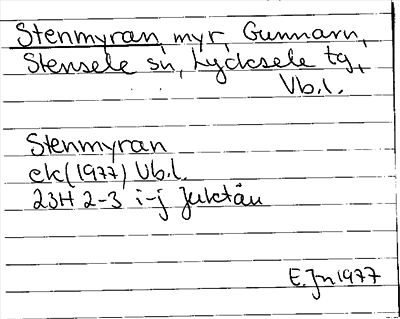 Stenmyran, myr, Gunnarn,
Stensele sn, Lycksele tg,
Vb.l.
Stenmyran
ek(1977) Vb.l.
23H 2-3 i-j Juktån
E.Jn 1977